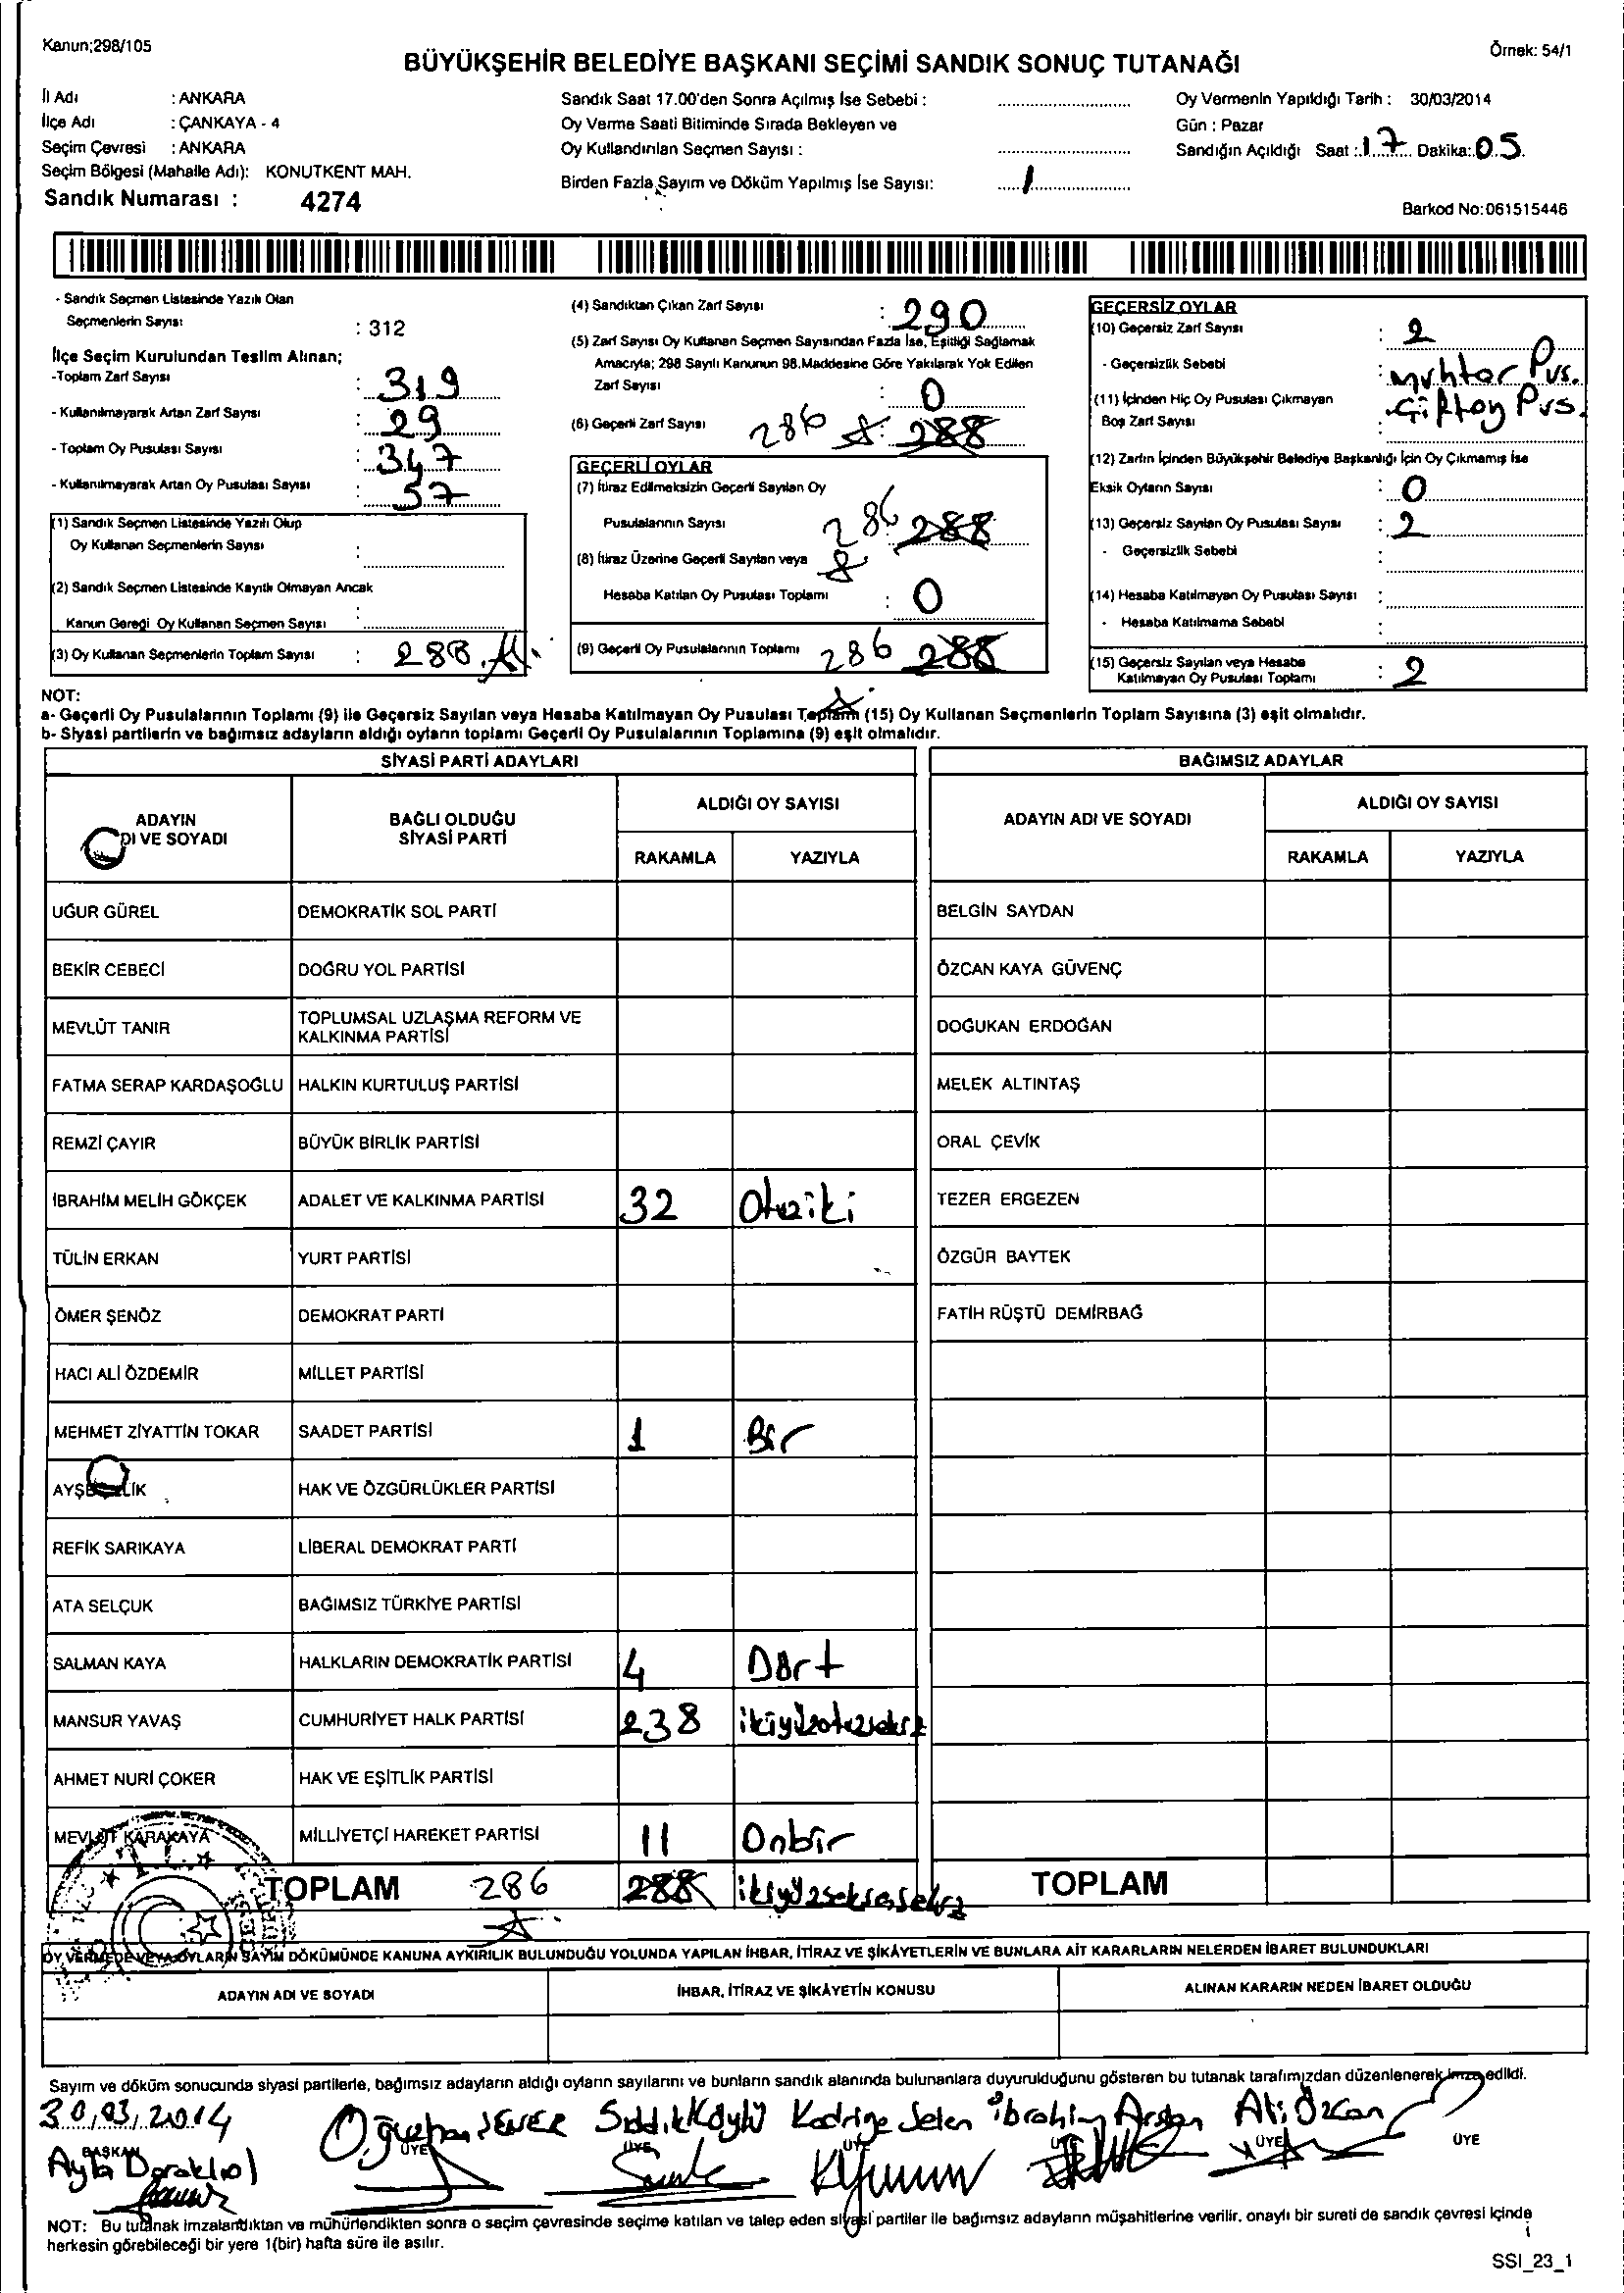 Kanun;298/105
Örnek: 54/1
BÜYÜKŞEHİR BELEDİYE BAŞKANI SEÇİMİ SANDIK SONUÇ TUTANAĞI
İl Adı : ANKARA
İlçe Adı : ÇANKAYA - 4
Seçim Çevresi : ANKARA
Seçim Bölgesi (Mahalle Adı): KONUTKENT MAH.
Sandık Numarası : 4274
Sandık Saat 17.00'den Sonra Açılmış İse Sebebi :
Oy Verme Saati Bitiminde Sırada Bekleyen ve
Oy Kullandırılan Seçmen Sayısı :
Birden Fazla Sayım ve Döküm Yapılmış İse Sayısı: 1
Oy Vermenin Yapıldığı Tarih : 30/03/2014
Gün : Pazar
Sandığın Açıldığı Saat : 17 Dakika: 05
Barkod No:061515446
- Sandık Seçmen Listesinde Yazılı Olan
Seçmenlerin Sayısı : 312
İlçe Seçim Kurulundan Teslim Alınan;
-Toplam Zarf Sayısı : 319
- Kullanılmayarak Artan Zarf Sayısı : 29
- Toplam Oy Pusulası Sayısı : 347
- Kullanılmayarak Artan Oy Pusulası Sayısı : 57
(1) Sandık Seçmen Listesinde Yazılı Olup
Oy Kullanan Seçmenlerin Sayısı :
(2) Sandık Seçmen Listesinde Kayıtlı Olmayan Ancak
Kanun Gereği Oy Kullanan Seçmen Sayısı :
(3) Oy Kullanan Seçmenlerin Toplam Sayısı : 288
(4) Sandıktan Çıkan Zarf Sayısı : 290
(5) Zarf Sayısı Oy Kullanan Seçmen Sayısından Fazla İse, Eşitliği Sağlamak
Amacıyla; 298 Sayılı Kanunun 98.Maddesine Göre Yakılarak Yok Edilen
Zarf Sayısı : 0
(6) Geçerli Zarf Sayısı 286 : 288
GEÇERLİ OYLAR
(7) İtiraz Edilmeksizin Geçerli Sayılan Oy
Pusulalarının Sayısı 286 288
(8) İtiraz Üzerine Geçerli Sayılan veya
Hesaba Katılan Oy Pusulası Toplamı : 0
(9) Geçerli Oy Pusulalarının Toplamı 286 288
GEÇERSİZ OYLAR
(10) Geçersiz Zarf Sayısı : 2
- Geçersizlik Sebebi : muhtar Pus.
(11) İçinden Hiç Oy Pusulası Çıkmayan
Boş Zarf Sayısı :
(12) Zarfın İçinden Büyükşehir Belediye Başkanlığı İçin Oy Çıkmamış İse
Eksik Oyların Sayısı : 0
(13) Geçersiz Sayılan Oy Pusulası Sayısı : 2
- Geçersizlik Sebebi :
(14) Hesaba Katılmayan Oy Pusulası Sayısı :
- Hesaba Katılmama Sebebi :
(15) Geçersiz Sayılan veya Hesaba
Katılmayan Oy Pusulası Toplamı : 2
NOT:
a- Geçerli Oy Pusulalarının Toplamı (9) ile Geçersiz Sayılan veya Hesaba Katılmayan Oy Pusulası Toplamı (15) Oy Kullanan Seçmenlerin Toplam Sayısına (3) eşit olmalıdır.
b- Siyasi partilerin ve bağımsız adayların aldığı oyların toplamı Geçerli Oy Pusulalarının Toplamına (9) eşit olmalıdır.
SİYASİ PARTİ ADAYLARI
BAĞIMSIZ ADAYLAR
ADAYIN
DI VE SOYADI
BAĞLI OLDUĞU
SİYASİ PARTİ
ALDIĞI OY SAYISI
RAKAMLA YAZIYLA
ADAYIN ADI VE SOYADI
ALDIĞI OY SAYISI
RAKAMLA YAZIYLA
UĞUR GÜREL DEMOKRATİK SOL PARTİ BELGİN SAYDAN
BEKİR CEBECİ DOĞRU YOL PARTİSİ ÖZCAN KAYA GÜVENÇ
MEVLÜT TANIR TOPLUMSAL UZLAŞMA REFORM VE
KALKINMA PARTİSİ DOĞUKAN ERDOĞAN
FATMA SERAP KARDAŞOĞLU HALKIN KURTULUŞ PARTİSİ MELEK ALTINTAŞ
REMZİ ÇAYIR BÜYÜK BİRLİK PARTİSİ ORAL ÇEVİK
İBRAHİM MELİH GÖKÇEK ADALET VE KALKINMA PARTİSİ 32 Otuziki TEZER ERGEZEN
TÜLİN ERKAN YURT PARTİSİ ÖZGÜR BAYTEK
ÖMER ŞENÖZ DEMOKRAT PARTİ FATİH RÜŞTÜ DEMİRBAĞ
HACI ALİ ÖZDEMİR MİLLET PARTİSİ
MEHMET ZİYATTİN TOKAR SAADET PARTİSİ 1 Bir
HAK VE ÖZGÜRLÜKLER PARTİSİ
REFİK SARIKAYA LİBERAL DEMOKRAT PARTİ
ATA SELÇUK BAĞIMSIZ TÜRKİYE PARTİSİ
SALMAN KAYA HALKLARIN DEMOKRATİK PARTİSİ 4 Dört
MANSUR YAVAŞ CUMHURİYET HALK PARTİSİ 238 ikiyüzotuzsekiz
AHMET NURİ ÇOKER HAK VE EŞİTLİK PARTİSİ
MEVLÜT KARAKAYA MİLLİYETÇİ HAREKET PARTİSİ 11 Onbir
TOPLAM 286 288 ikiyüzseksensekiz TOPLAM
OY VERMEDE VEYA OYLARIN SAYIM DÖKÜMÜNDE KANUNA AYKIRILIK BULUNDUĞU YOLUNDA YAPILAN İHBAR, İTİRAZ VE ŞİKÂYETLERİN VE BUNLARA AİT KARARLARIN NELERDEN İBARET BULUNDUKLARI
ADAYIN ADI VE SOYADI İHBAR, İTİRAZ VE ŞİKÂYETİN KONUSU ALINAN KARARIN NEDEN İBARET OLDUĞU
Sayım ve döküm sonucunda siyasi partilerle, bağımsız adayların aldığı oyların sayılarını ve bunların sandık alanında bulunanlara duyurulduğunu gösteren bu tutanak tarafımızdan düzenlenerek imza edildi.
30/03/2014
Oğuzhan SEVER Sıddık Köylü Kadriye Selen İbrahim Arslan Ali Özcan
BAŞKAN ÜYE ÜYE ÜYE ÜYE ÜYE ÜYE
NOT: Bu tutanak imzalandıktan ve mühürlendikten sonra o seçim çevresinde seçime katılan ve talep eden siyasi partiler ile bağımsız adayların müşahitlerine verilir. onaylı bir sureti de sandık çevresi içinde
herkesin görebileceği bir yere 1(bir) hafta süre ile asılır.
SSI_23_1